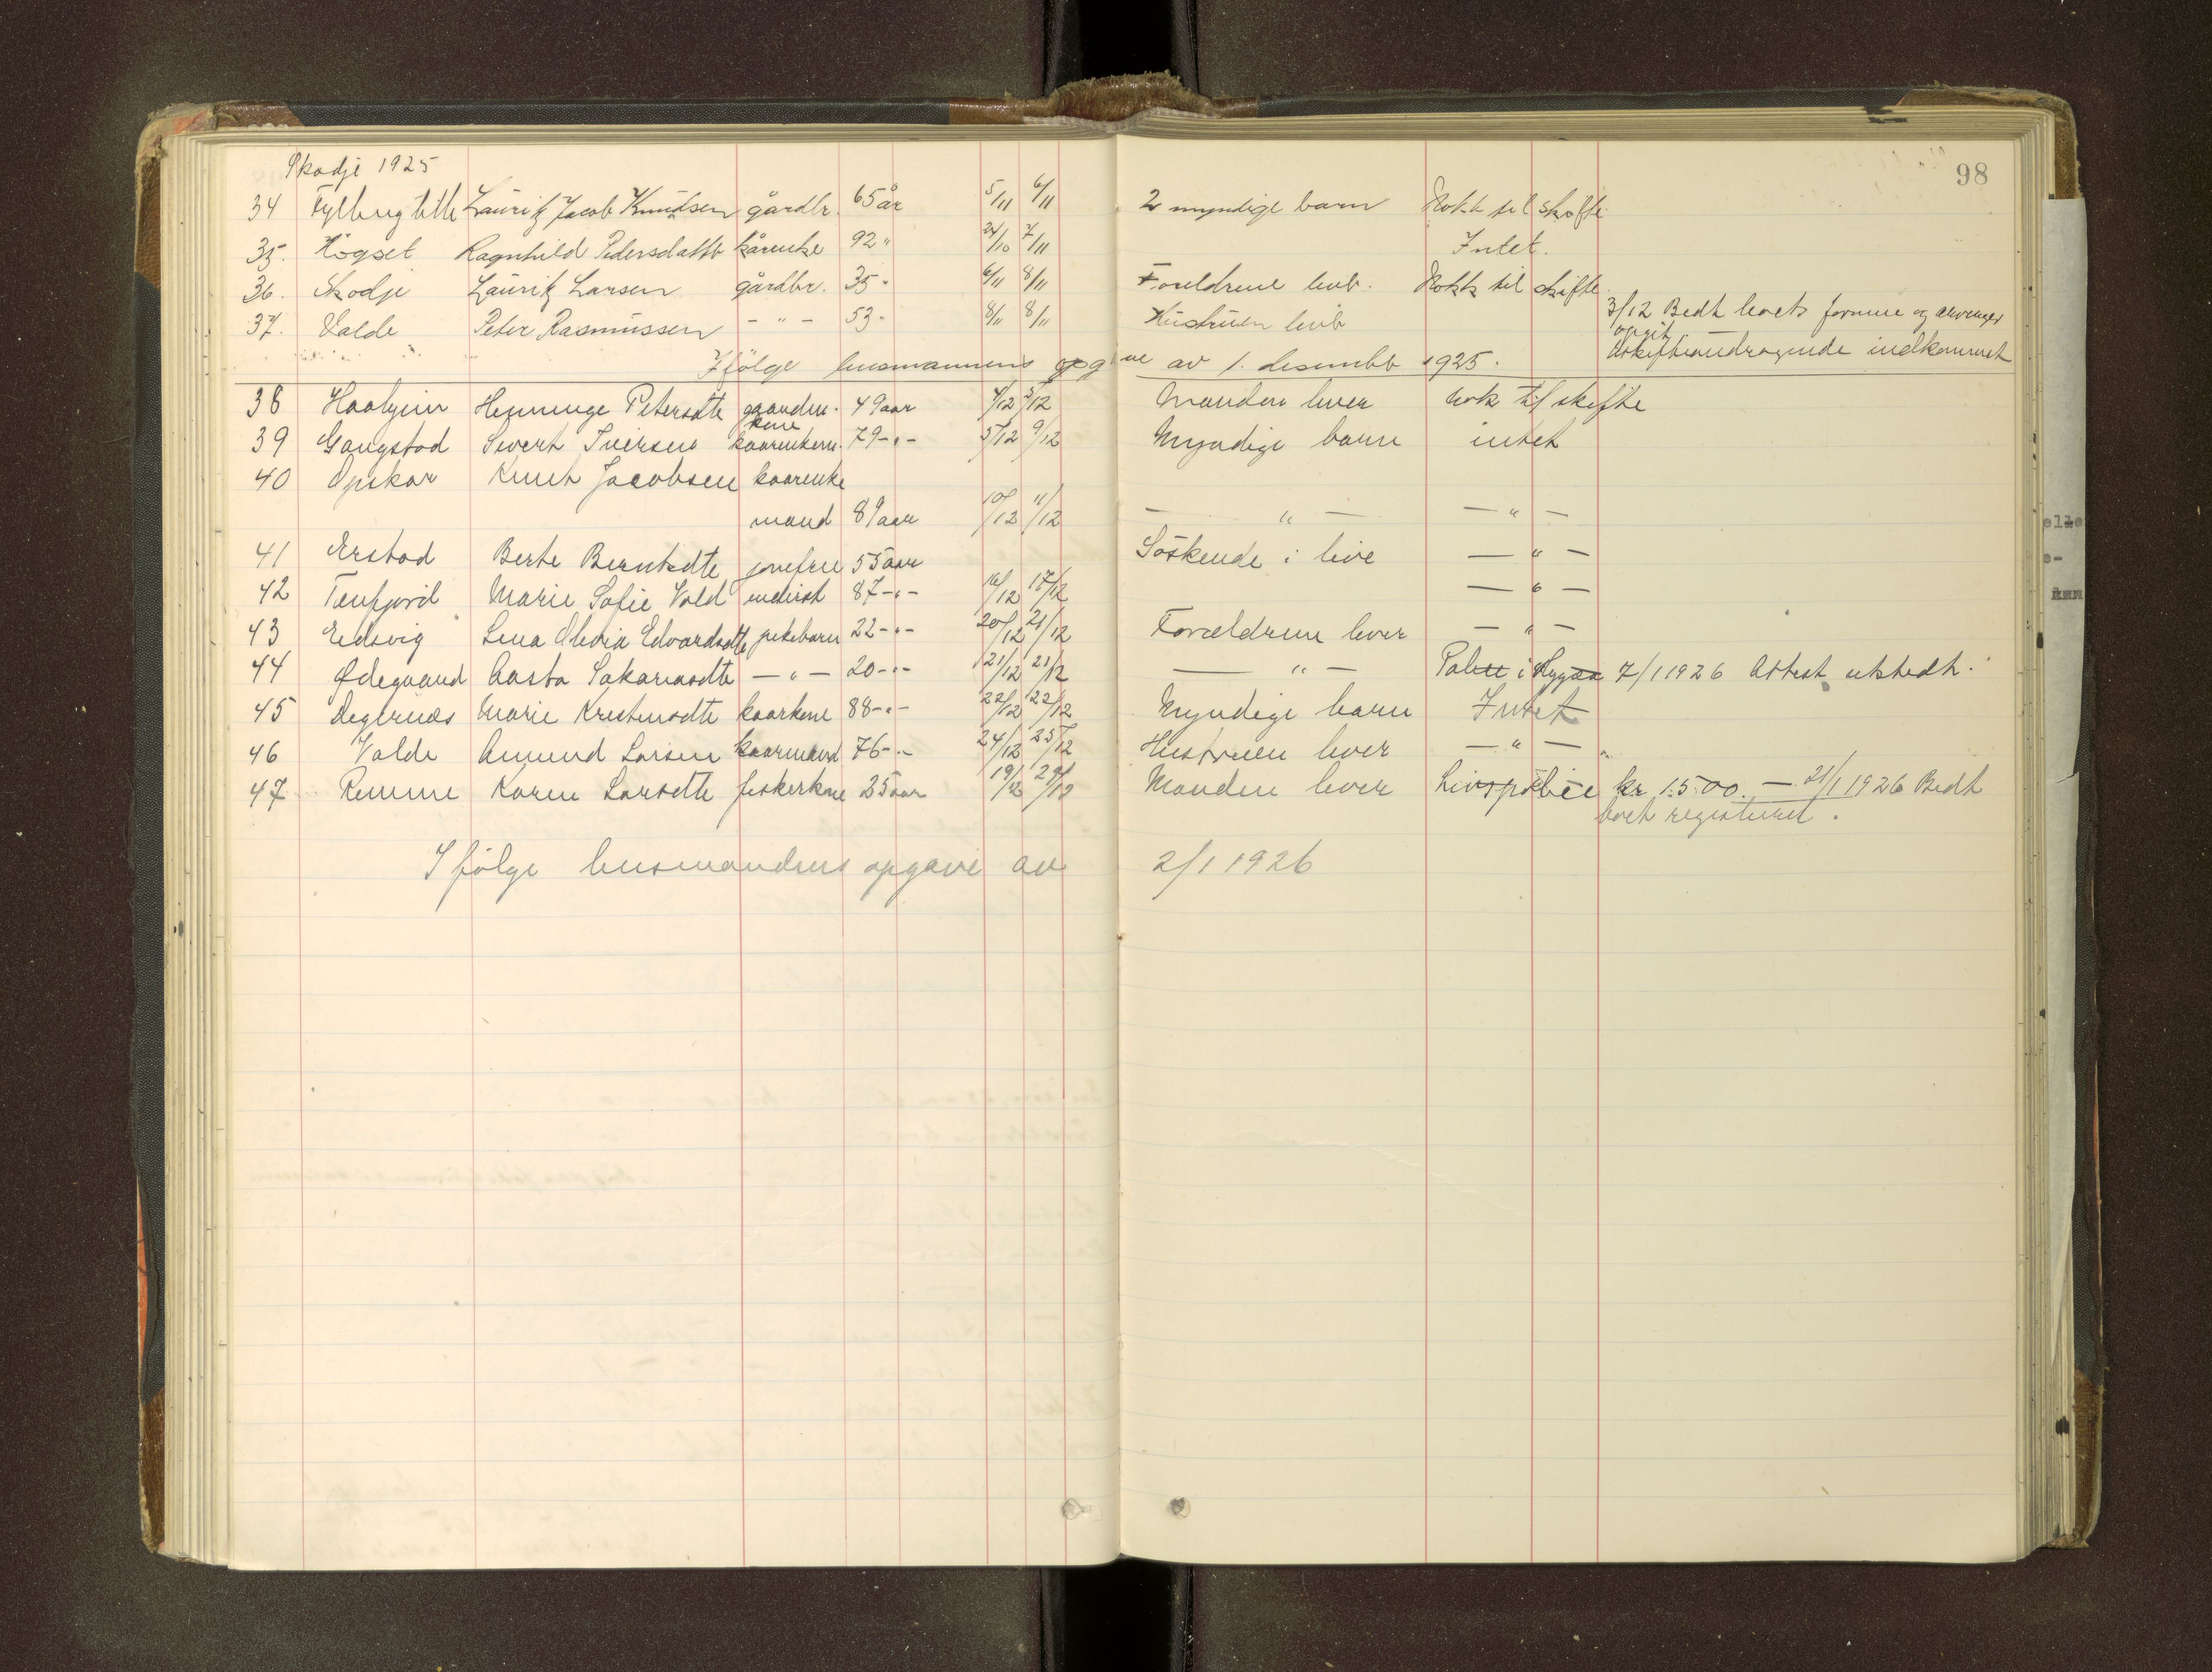 98
Skodje 1925
34 Fylling lille Lauritz Jacob Knudsen gårdbr. 65 år 5/11 6/11 2 myndige barn Nokk til skifte
35. Högset Ragnhild Pedersdattr kårenke 92 " 24/10 7/11 Intet.
36. Skodje Lauritz Larsen gårdbr. 35 " 6/11 8/11 Foreldrene levr. Nokk til skifte
37. Valde Peter Rasmussen - " - 53 " 8/11 8/11 Hustruen levr 3/12 Bedt boets formue og arvinger
opgit
indkommet
Ifölge lensmannens opgave av 1. desembr 1925.
38 Haahjem Henninge Petersdtr gaardm. 49 aar 4/12 5/12 Manden lever nok til skifte
kone
39 Gangstad Sivert Iversen kaarenkem. 79 - " - 5/12 9/12 Myndige barn intet
40 Opskar Knut Jacobsen kaarenke
mand 89 aar 10/12 11/12 - " - - " -
41 Erstad Berte Berntsdtr jomfru 55 aar Söskende i live - " -
42 Tenfjord Marie Sofie Vold inderst 87 - " - 16/12 17/12 - " -
43 Eidsvig Lina Olivia Edvardsdtr pikebarn 22 - " - 20/12 21/12 Forældrene lever - " -
44 Ødegaard Aasta Sakariasdtr - " - 20 - " - 21/12 21/12 - " - i Hygea 7/1 1926 Attest utstedt.
45 Degernæs Marie Kristensdtr kaarkone 88 - " - 22/12 22/12 Myndige barn Intet
46 Valde Amund Larsen kaarmand 76 - " - 24/12 25/12 Hustruen lever - " -
47 Remme Karen Larsdtr fiskerkone 25 aar 19/12 29/12 Manden lever Livspolice kr 1500. - 21/1 1926 Bedt
boet registeret.
Ifölge lensmandens opgave av 2/1 1926